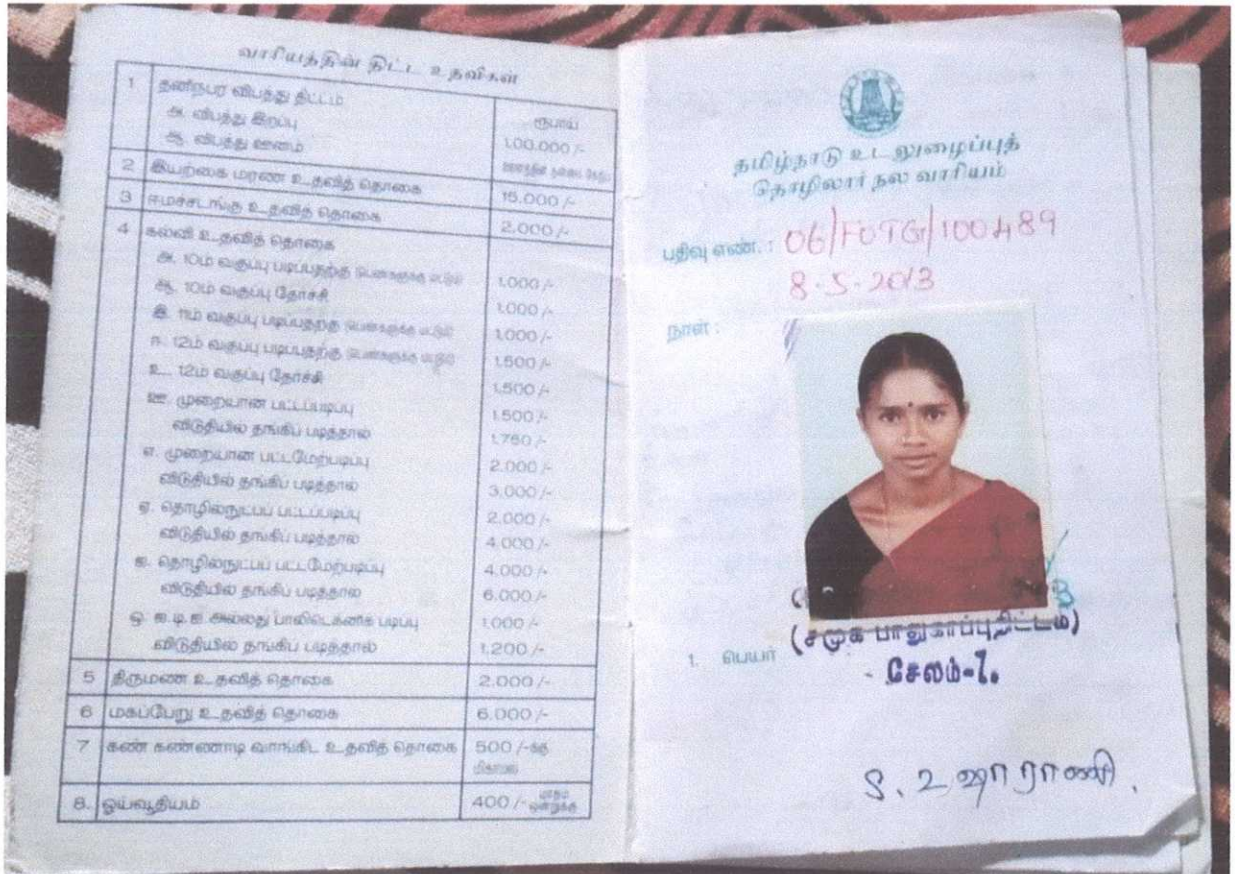 வாரியத்தின் திட்ட உதவிகள்
1 தனிநபர விபத்து திட்டம் ரூபாய்
அ. விபத்து இறப்பு 1,00,000/-
ஆ. விபத்து ஊனம்
2 இயற்கை மரண உதவித் தொகை 15,000/-
3 ஈமச்சடங்கு உதவித் தொகை 2,000/-
4 கல்வி உதவித் தொகை
அ. 10ம் வகுப்பு படிப்பதற்கு (பெண்களுக்கு மட்டும்) 1,000/-
ஆ. 10ம் வகுப்பு தேர்ச்சி 1,000/-
இ. 11ம் வகுப்பு படிப்பதற்கு (பெண்களுக்கு மட்டும்) 1,000/-
ஈ. 12ம் வகுப்பு படிப்பதற்கு (பெண்களுக்கு மட்டும்) 1,500/-
உ. 12ம் வகுப்பு தேர்ச்சி 1,500/-
ஊ. முறையான பட்டப்படிப்பு 1,500/-
விடுதியில் தங்கிப் படித்தால் 1,750/-
எ. முறையான பட்டமேற்படிப்பு 2,000/-
விடுதியில் தங்கிப் படித்தால் 3,000/-
ஏ. தொழில்நுட்பப் பட்டப்படிப்பு 2,000/-
விடுதியில் தங்கிப் படித்தால் 4,000/-
ஐ. தொழில்நுட்பப் பட்டமேற்படிப்பு 4,000/-
விடுதியில் தங்கிப் படித்தால் 6,000/-
ஒ. ஐ.டி.ஐ. அல்லது பாலிடெக்னிக் படிப்பு 1,000/-
விடுதியில் தங்கிப் படித்தால் 1,200/-
5 திருமண உதவித் தொகை 2,000/-
6 மகப்பேறு உதவித் தொகை 6,000/-
7 கண் கண்ணாடி வாங்கிட உதவித் தொகை 500/-க்கு
மிகாமல்
8. ஓய்வூதியம் 400/- மாதம் ஒன்றுக்கு
தமிழ்நாடு உடலுழைப்புத்
தொழிலாளர் நல வாரியம்
பதிவு எண். : 06/FOTG/100489
8-5-2013
நாள் :
(சமூக பாதுகாப்புதிட்டம்)
1. பெயர் சேலம்-7.
S. உஷாராணி.